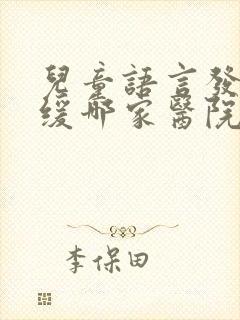 兒童語言發
緩哪家醫院
李保田